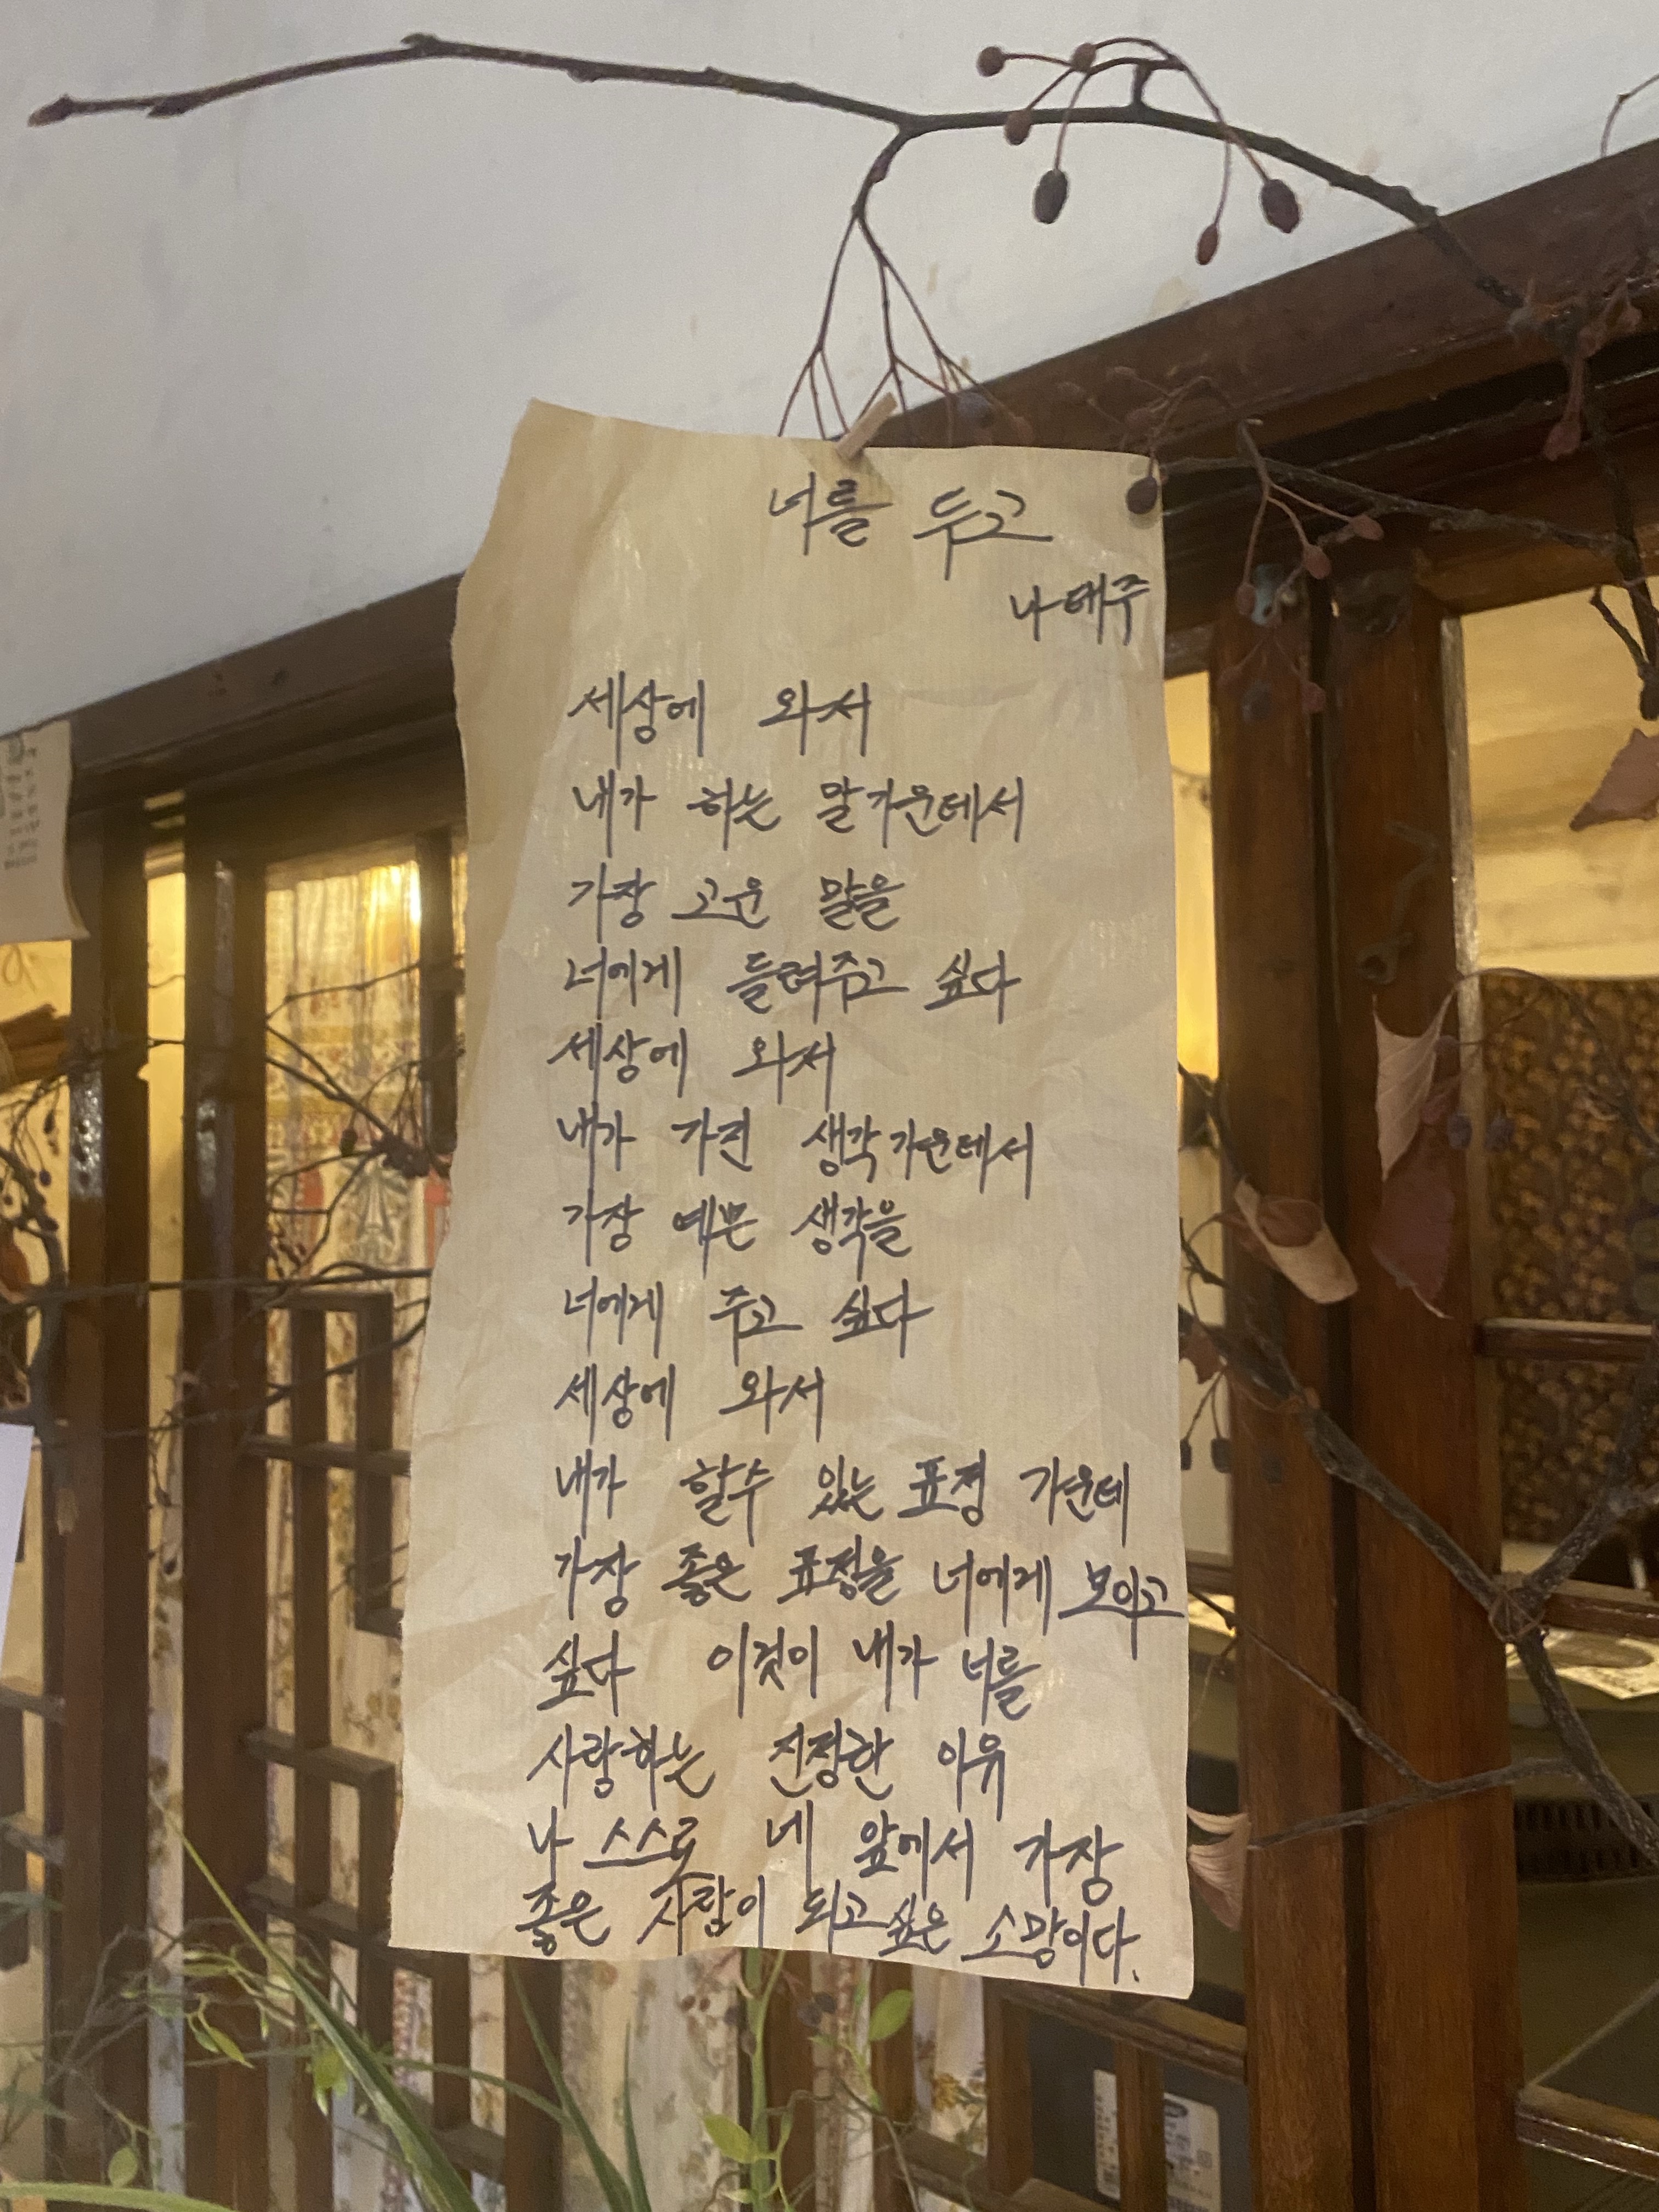 너를 두고
나태주
세상에 와서
내가 하는 말가운데서
가장 고운 말을
너에게 들려주고 싶다
세상에 와서
내가 가진 생각가운데서
가장 예쁜 생각을
너에게 주고 싶다
세상에 와서
내가 할수 있는 표정 가운데
가장 좋은 표정을 너에게 보이고
싶다 이것이 내가 너를
사랑하는 진정한 이유
나 스스로 네 앞에서 가장
좋은 사람이 되고싶은 소망이다.